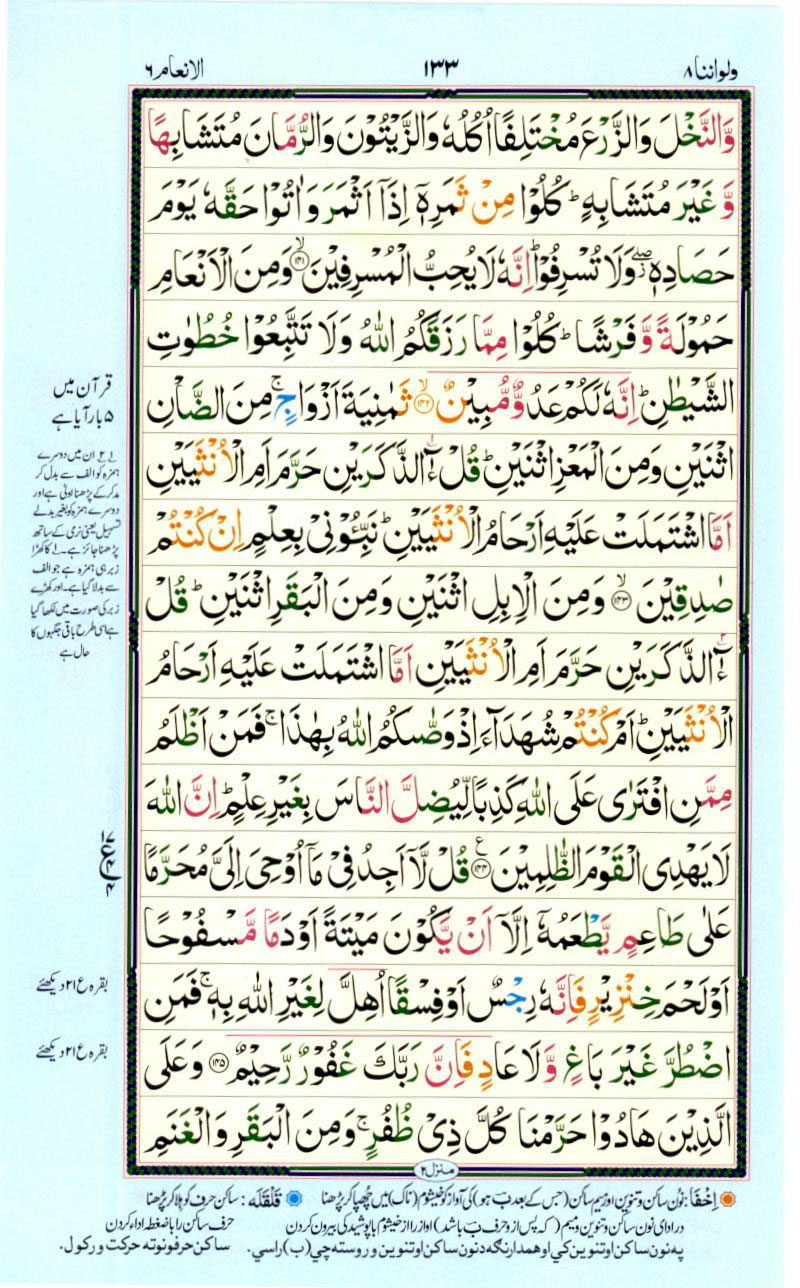 ولواننا ٨ ١٣٣ الانعام ٦
وَّالنَّخْلَ وَالزَّرْعَ مُخْتَلِفًا اُكُلُهٗ وَالزَّيْتُوْنَ وَالرُّمَّانَ مُتَشَابِهًا
وَّ غَيْرَ مُتَشَابِهٍ ؕ كُلُوْا مِنْ ثَمَرِهٖۤ اِذَاۤ اَثْمَرَ وَاٰتُوْا حَقَّهٗ يَوْمَ
حَصَادِهٖ ۖ٘ وَلَا تُسْرِفُوْا ؕ اِنَّهٗ لَا يُحِبُّ الْمُسْرِفِيْنَ ۙ﴿۱۴۱﴾ وَمِنَ الْاَنْعَامِ
حَمُوْلَةً وَّ فَرْشًا ؕ كُلُوْا مِمَّا رَزَقَكُمُ اللّٰهُ وَلَا تَتَّبِعُوْا خُطُوٰتِ
الشَّيْطٰنِ ؕ اِنَّهٗ لَكُمْ عَدُوٌّ مُّبِيْنٌ ۙ﴿۱۴۲﴾ ثَمٰنِيَةَ اَزْوَاجٍ ۚ مِنَ الضَّاْنِ
اثْنَيْنِ وَمِنَ الْمَعْزِ اثْنَيْنِ ؕ قُلْ ءٰٓالذَّكَرَيْنِ حَرَّمَ اَمِ الْاُنْثَيَيْنِ
اَمَّا اشْتَمَلَتْ عَلَيْهِ اَرْحَامُ الْاُنْثَيَيْنِ ؕ نَبِّـُٔوْنِيْ بِعِلْمٍ اِنْ كُنْتُمْ
صٰدِقِيْنَ ۙ﴿۱۴۳﴾ وَمِنَ الْاِبِلِ اثْنَيْنِ وَمِنَ الْبَقَرِ اثْنَيْنِ ؕ قُلْ
ءٰٓالذَّكَرَيْنِ حَرَّمَ اَمِ الْاُنْثَيَيْنِ اَمَّا اشْتَمَلَتْ عَلَيْهِ اَرْحَامُ
الْاُنْثَيَيْنِ ؕ اَمْ كُنْتُمْ شُهَدَآءَ اِذْ وَصّٰىكُمُ اللّٰهُ بِهٰذَا ۚ فَمَنْ اَظْلَمُ
مِمَّنِ افْتَرٰى عَلَى اللّٰهِ كَذِبًا لِّيُضِلَّ النَّاسَ بِغَيْرِ عِلْمٍ ؕ اِنَّ اللّٰهَ
لَا يَهْدِى الْقَوْمَ الظّٰلِمِيْنَ ﴿۱۴۴﴾ ع قُلْ لَّاۤ اَجِدُ فِيْ مَاۤ اُوْحِىَ اِلَىَّ مُحَرَّمًا
عَلٰى طَاعِمٍ يَّطْعَمُهٗۤ اِلَّاۤ اَنْ يَّكُوْنَ مَيْتَةً اَوْ دَمًا مَّسْفُوْحًا
اَوْ لَحْمَ خِنْزِيْرٍ فَاِنَّهٗ رِجْسٌ اَوْ فِسْقًا اُهِلَّ لِغَيْرِ اللّٰهِ بِهٖ ۚ فَمَنِ
اضْطُرَّ غَيْرَ بَاغٍ وَّلَا عَادٍ فَاِنَّ رَبَّكَ غَفُوْرٌ رَّحِيْمٌ ﴿۱۴۵﴾ وَعَلَى
الَّذِيْنَ هَادُوْا حَرَّمْنَا كُلَّ ذِيْ ظُفُرٍ ۚ وَمِنَ الْبَقَرِ وَالْغَنَمِ
منزل ٢
قرآن میں
۵ بار آیا ہے
١ ٢ ان میں دوسرے
ہمزہ کو الف سے بدل کر
مد کر کے پڑھنا اولیٰ ہے اور
دوسرے ہمزہ کو بغیر بدلے
تسہیل یعنی نرمی کے ساتھ
پڑھنا جائز ہے۔ ا کا کھڑا
زبر ہی ہمزہ ہے جو الف
سے بدلا گیا ہے۔ اور کھڑے
زبر کی صورت میں لکھا گیا
ہے اسی طرح باقی جگہوں کا
حال ہے
بقرہ ع ۲۱ دیکھئے
بقرہ ع ۲۱ دیکھئے
اِخْفَا: نون ساکن و تنوین اور میم ساکن (جس کے بعد ب ہو) کی آواز کو خیشوم (ناک) میں چھپا کر پڑھنا قَلْقَلَه: ساکن حرف کو ہلا کر پڑھنا
در ادای نون ساکن و تنوین و میم (که پس از و حرف ب باشد) اواز را از خیشوم با پوشیدگی بیرون کردن حرف ساکن را با ضغطه اداء کردن
په نون ساکن او تنوین کي او همدارنګه د نون ساکن او تنوین وروسته چي (ب) راسي. ساکن حرفونو ته حرکت ورکول.